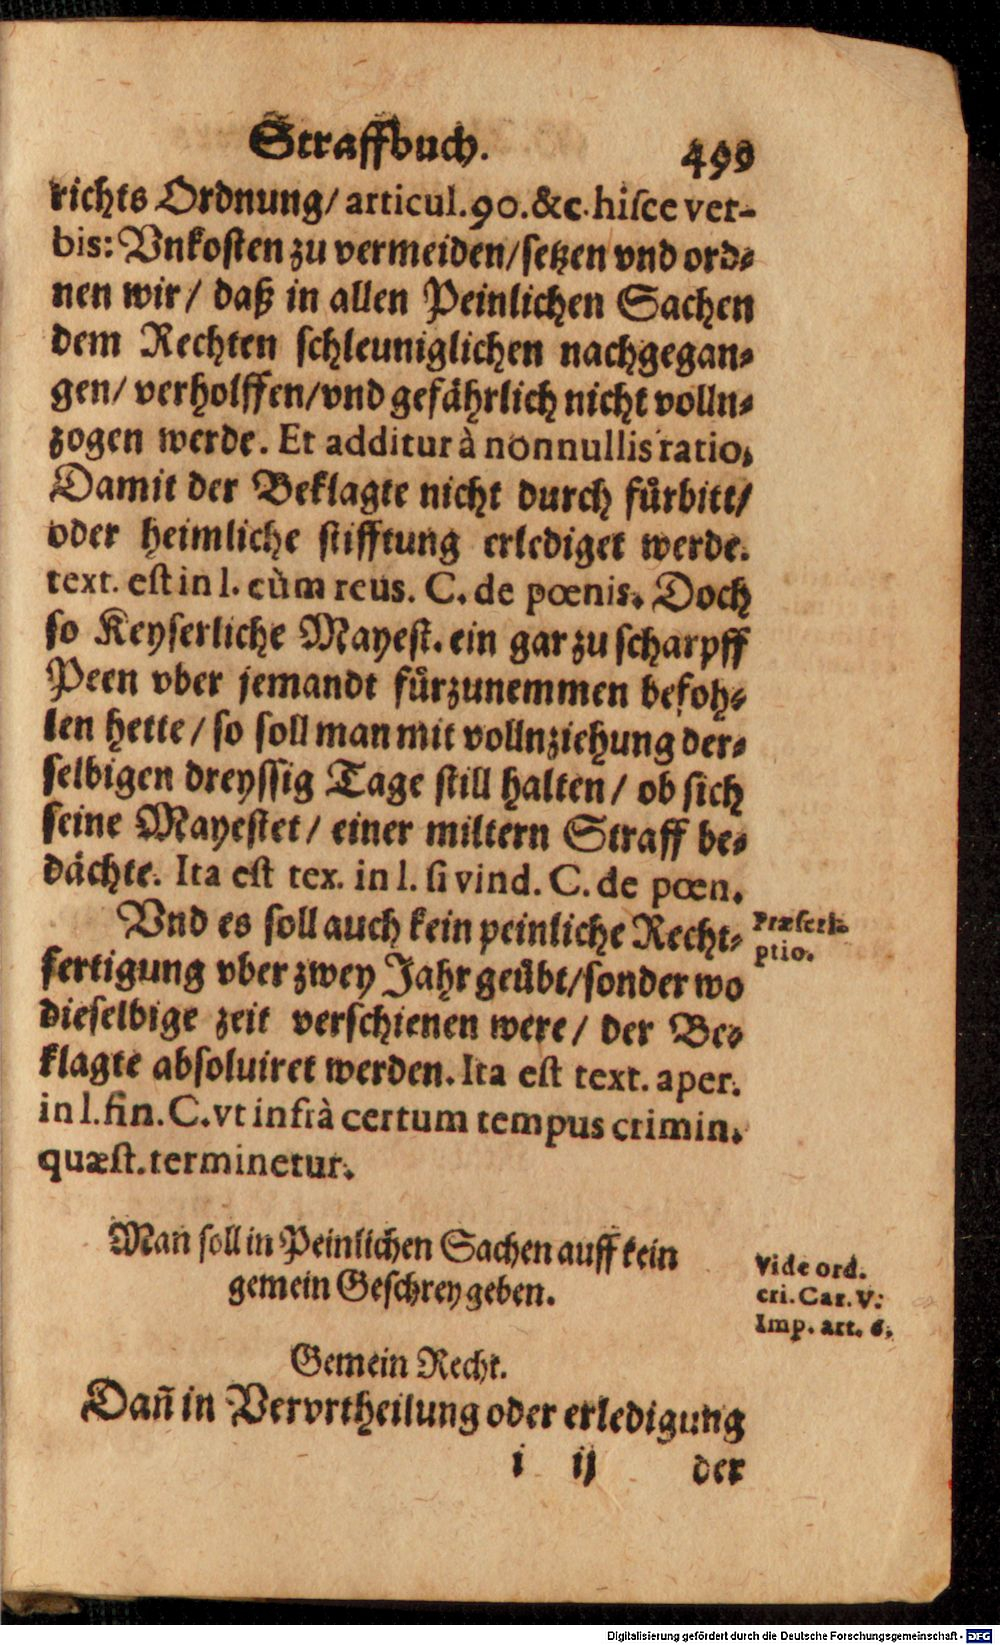 Straffbuch. 499
richts Ordnung/ articul. 90. &c. hisce ver-
bis: Vnkosten zu vermeiden/ setzen vnd ord-
nen wir/ daß in allen Peinlichen Sachen
dem Rechten schleuniglichen nachgegan-
gen/ verholffen/ vnd gefährlich nicht volln-
zogen werde. Et additur à nonnullis ratio,
Damit der Beklagte nicht durch fürbitt/
oder heimliche stifftung erlediget werde.
text. est in l. cùm reus. C. de pœnis. Doch
so Keyserliche Mayest. ein gar zu scharpff
Peen vber jemandt fürzunemmen befoh-
len hette/ so soll man mit vollnziehung der-
selbigen dreyssig Tage still halten/ ob sich
seine Mayestet/ einer miltern Straff be-
dächte. Ita est tex. in l. si vind. C. de pœn.
Vnd es soll auch kein peinliche Recht-
fertigung vber zwey Jahr geübt/ sonder wo
dieselbige zeit verschienen were/ der Be-
klagte absoluiret werden. Ita est text. aper.
in l. fin. C. vt infrà certum tempus crimin.
quæst. terminetur.
Præscri-
ptio.
Man soll in Peinlichen Sachen auff kein
gemein Geschrey geben.
Vide ord.
cri. Car. V.
Imp. art. 6.
Gemein Recht.
Dañ in Vervrtheilung oder erledigung
i ij der
Digitalisierung gefördert durch die Deutsche Forschungsgemeinschaft - DFG